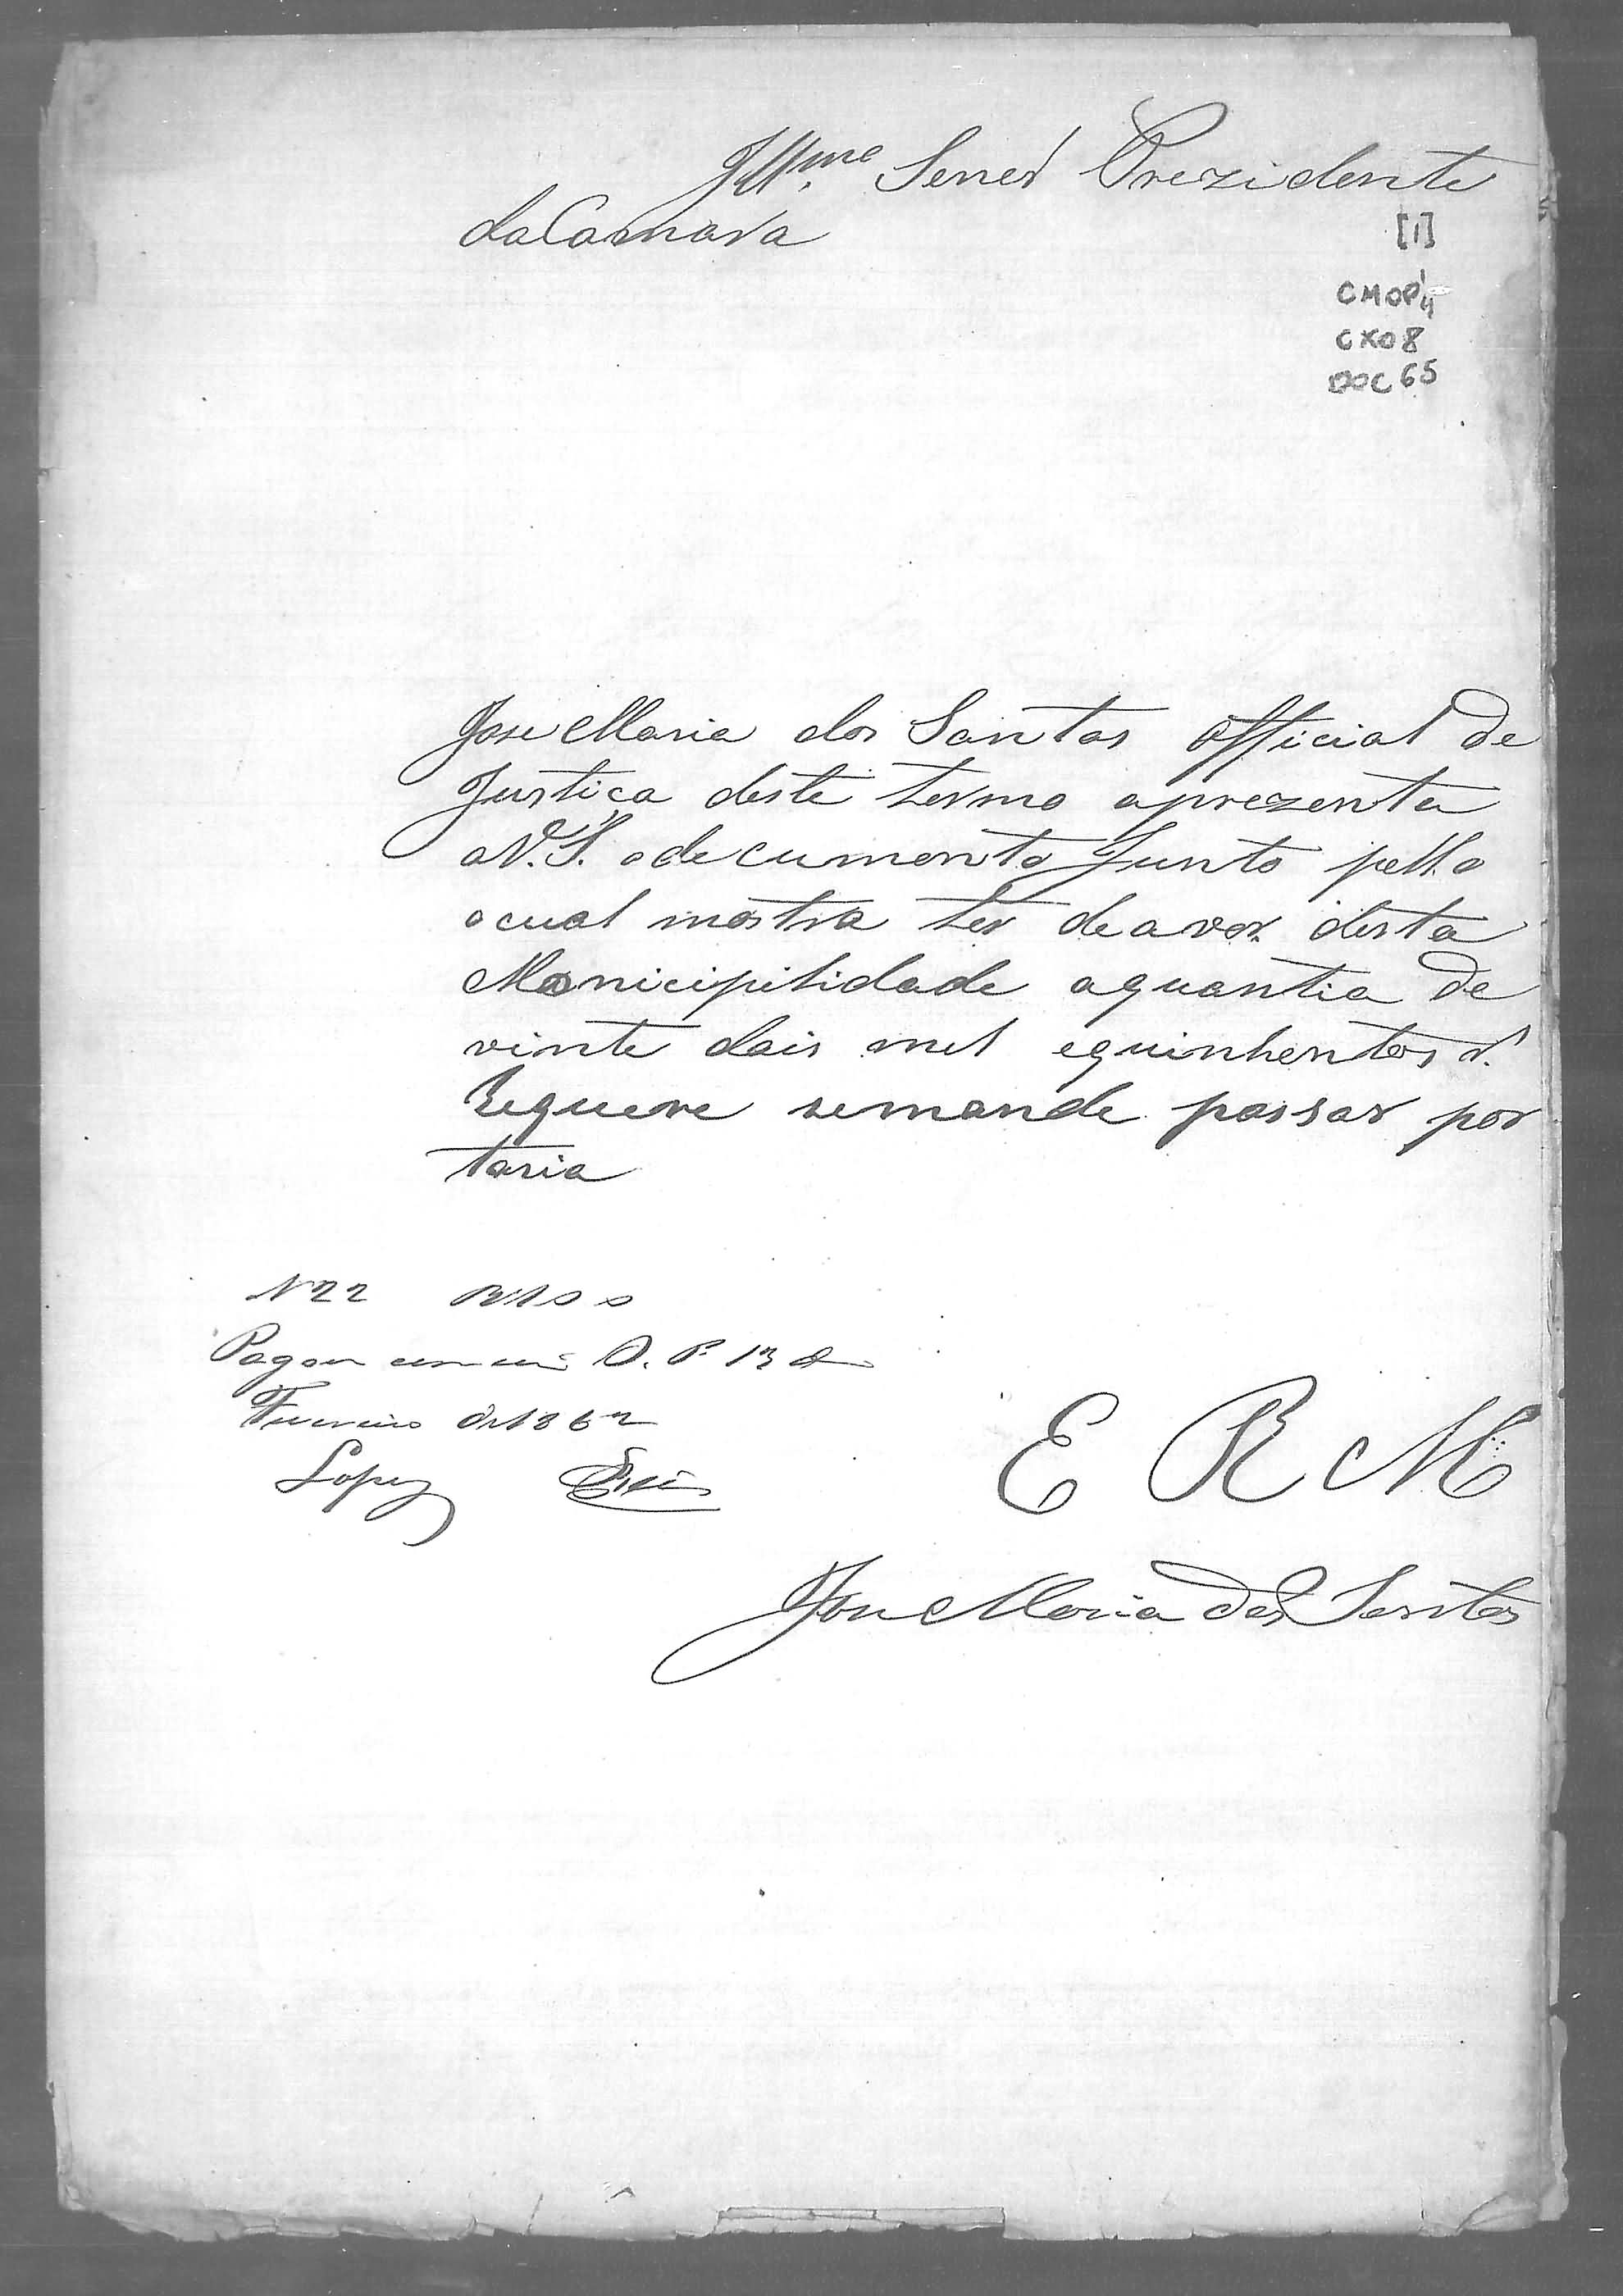 Illmo. Senor Prezidente
da Camara
[1]
CMOP
CX08
DOC 65
Jose Maria dos Santos Official de
Justiça deste termo aprezenta
a V. S. o decumento Junto pello
o cual mostra ter de aver desta
Monicipilidade a quantia de
vinte dois mel e quinhentos r.
Requere se mande passar por
taria
N 22
Pagou O. P. 13 de
Fevereiro de 186
Lopez
E R M
Jose Maria dos Santos